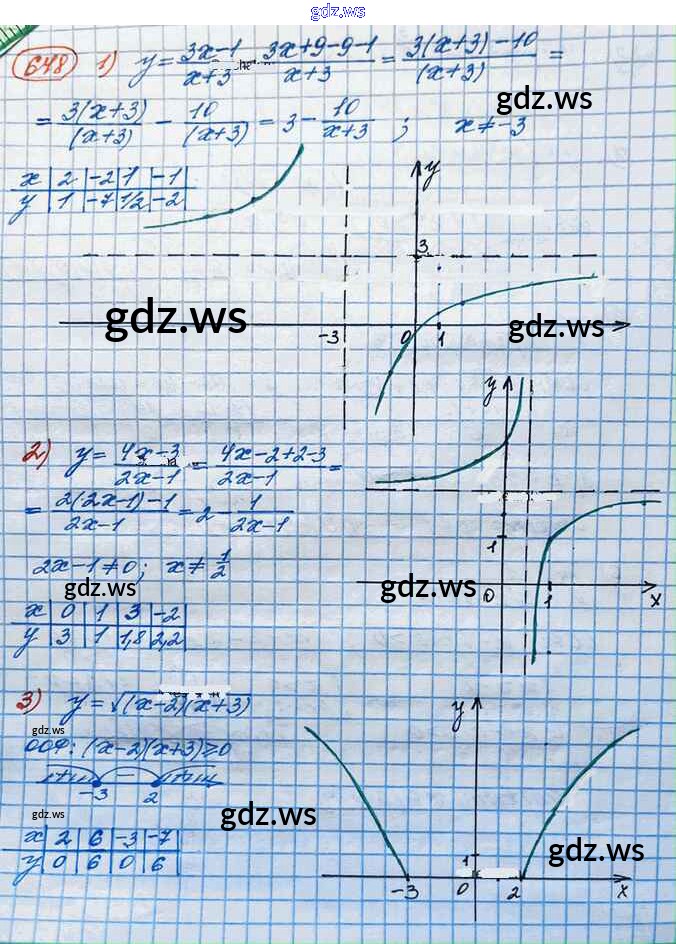 gdz.ws
648 1) y = (3x-1)/(x+3) = (3x+9-9-1)/(x+3) = (3(x+3)-10)/(x+3) =
gdz.ws
= 3(x+3)/(x+3) - 10/(x+3) = 3 - 10/(x+3) ; x ≠ -3
x | 2 | -2 | 1 | -1 |
y | 1 | -7 | 1/2 | -2 |
y
3
-3 0 1
gdz.ws
gdz.ws
2) y = (4x-3)/(2x-1) = (4x-2+2-3)/(2x-1) =
= (2(2x-1)-1)/(2x-1) = 2 - 1/(2x-1)
2x-1≠0; x ≠ 1/2
gdz.ws
x | 0 | 1 | 3 | -2
y | 3 | 1 | 1,8 | 2,2
y
1
0 1 x
gdz.ws
3) y = √(x-2)(x+3)
gdz.ws
ООФ: (x-2)(x+3)≥0
-
-3 2
gdz.ws
x | 2 | 6 | -3 | -7 |
y | 0 | 6 | 0 | 6 |
gdz.ws
y
1
-3 0 2 x
gdz.ws